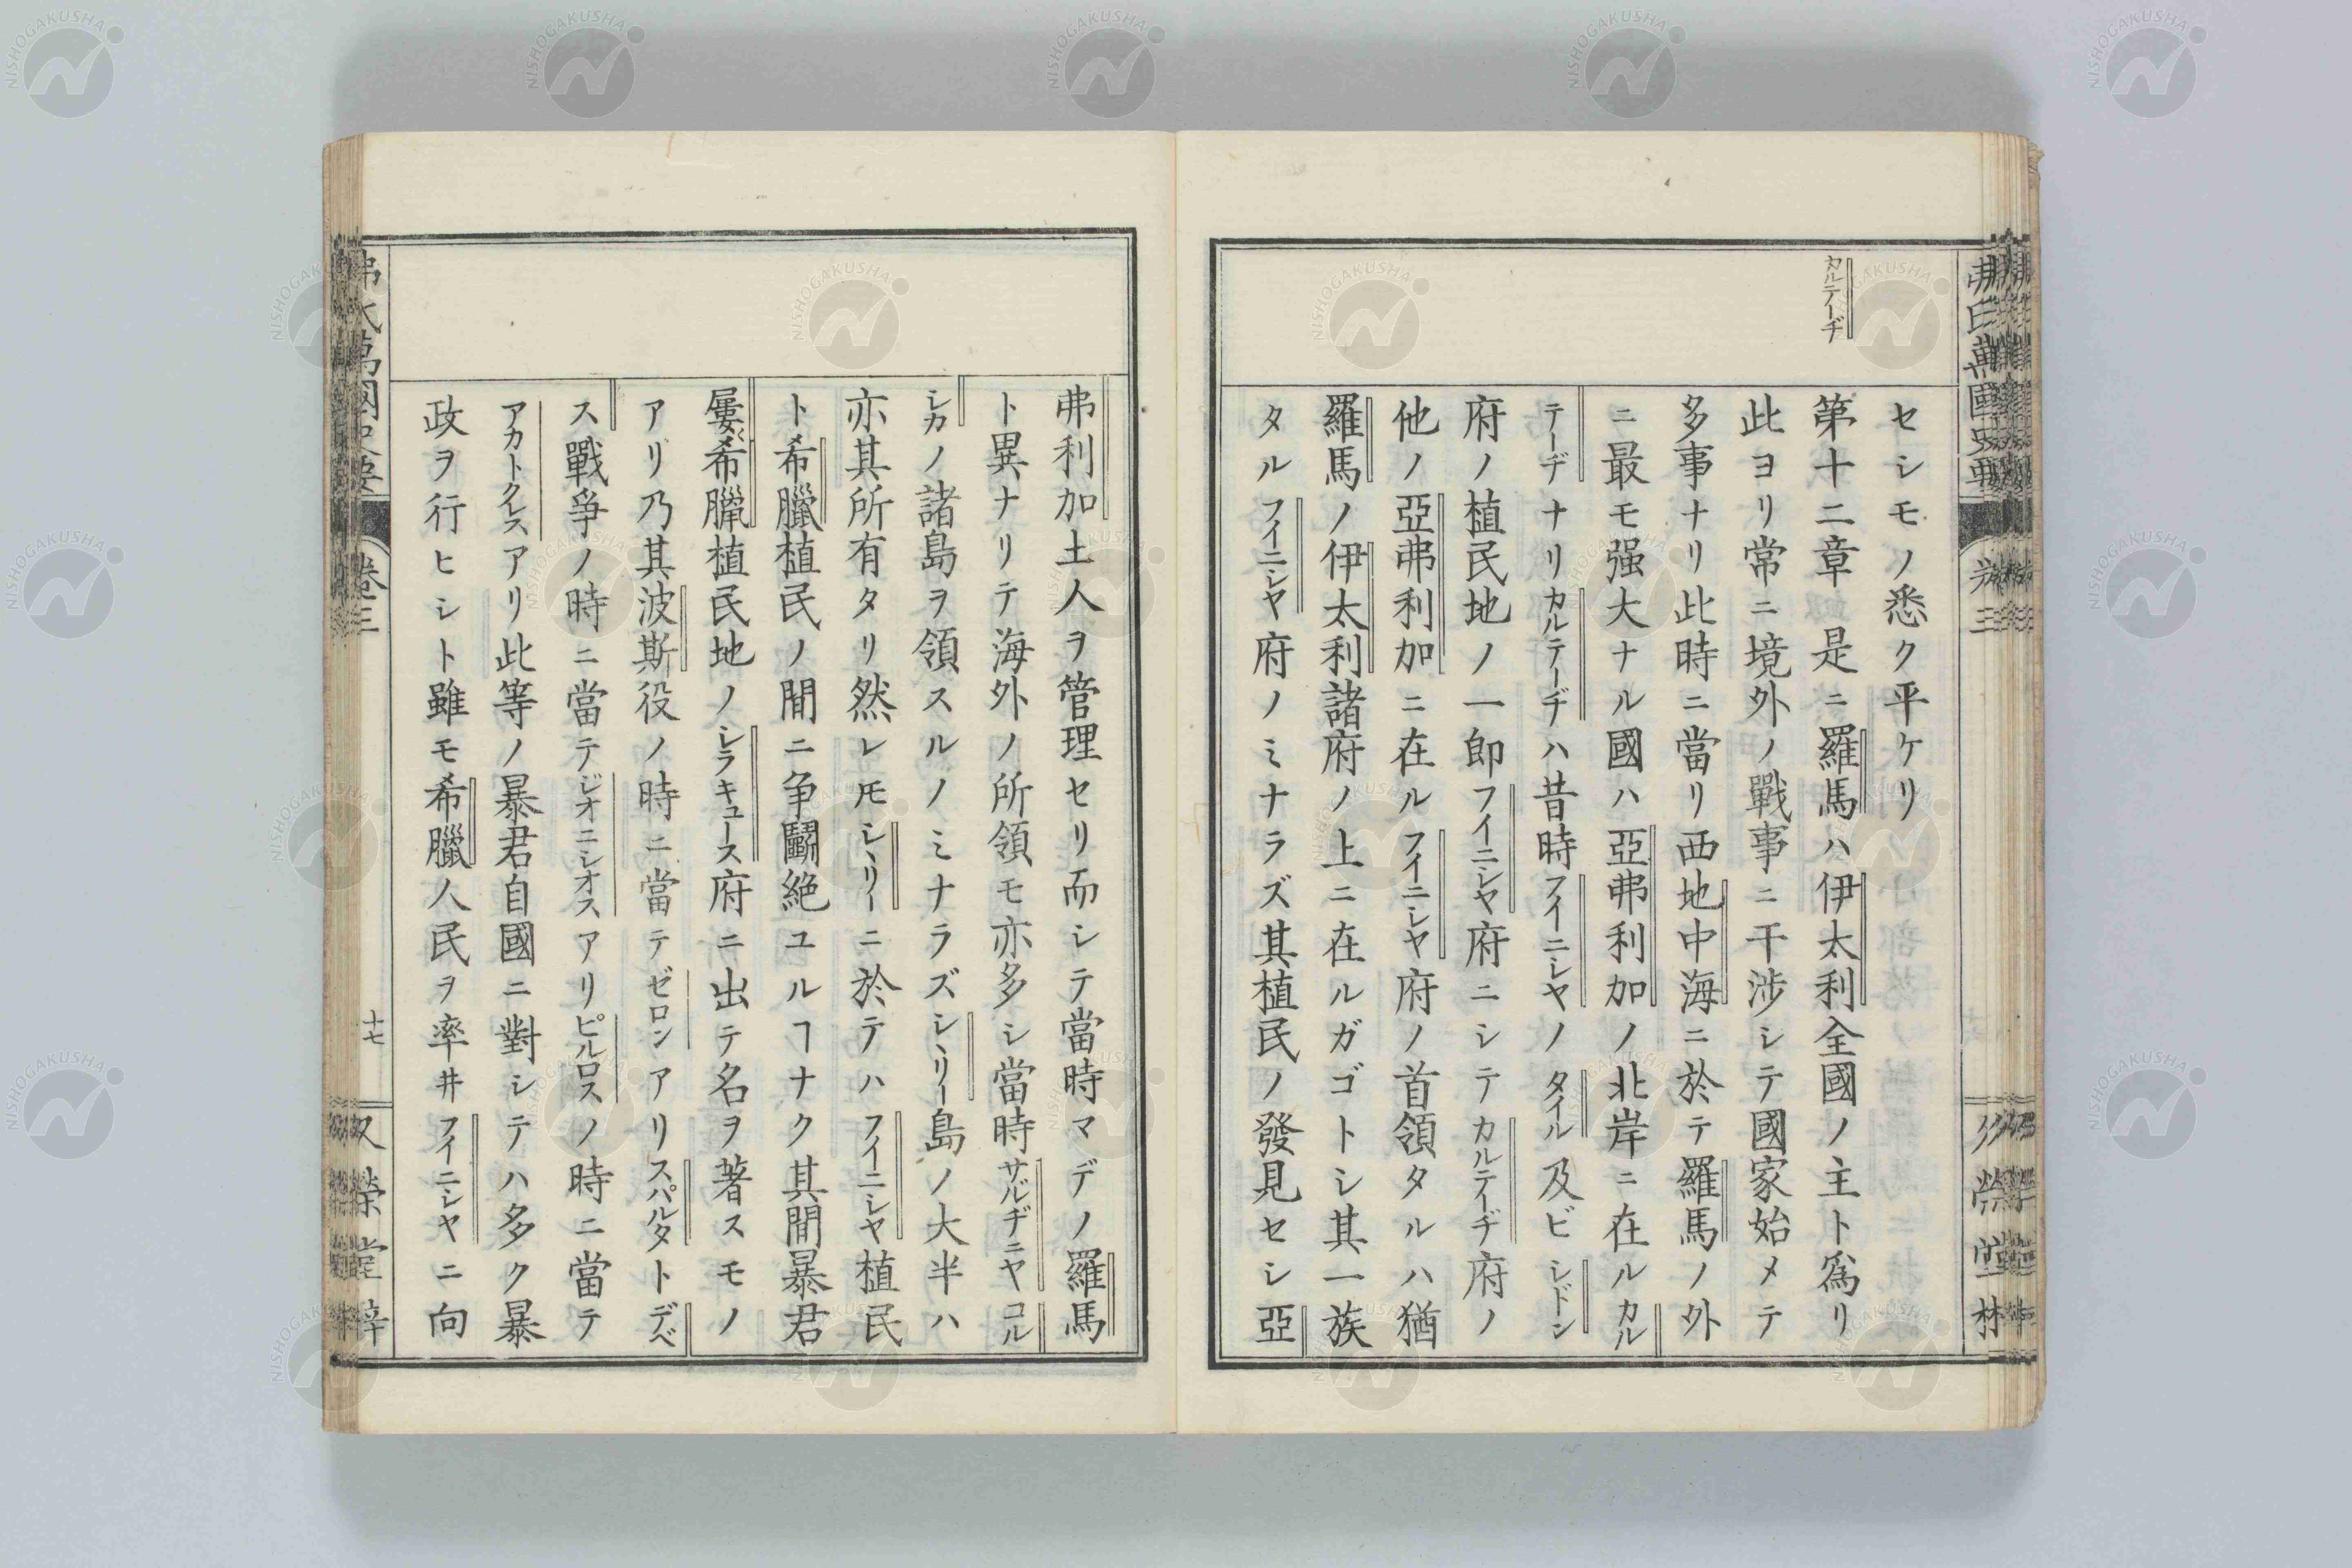 カルテーヂ
セシモノ悉ク平ケリ
第十二章 是ニ羅馬ハ伊太利全國ノ主ト爲リ
此ヨリ常ニ境外ノ戰事ニ干渉シテ國家始メテ
多事ナリ此時ニ當リ西地中海ニ於テ羅馬ノ外
ニ最モ强大ナル國ハ亞弗利加ノ北岸ニ在ルカル
テーヂナリカルテーヂハ昔時フイニシヤノタイル及ビシドン
府ノ植民地ノ一卽フイニシヤ府ニシテカルテーヂ府ノ
他ノ亞弗利加ニ在ルフイニシヤ府ノ首領タルハ猶
羅馬ノ伊太利諸府ノ上ニ在ルガゴトシ其一族
タルフイニシヤ府ノミナラズ其植民ノ發見セシ亞
弗利加土人ヲ管理セリ而シテ當時マデノ羅馬
ト異ナリテ海外ノ所領モ亦多シ當時サルヂニヤコル
シカノ諸島ヲ領スルノミナラズシヽリー島ノ大半ハ
亦其所有タリ然レ𪜈シヽリーニ於テハフイニシヤ植民
ト希臘植民ノ間ニ争鬭絶ユルヿナク其間暴君
屢〻希臘植民地ノシラキュース府ニ出テ名ヲ著スモノ
アリ乃其波斯役ノ時ニ當テゼロンアリスパルタトデベ
ス戰爭ノ時ニ當テジオニシオスアリピルロスノ時ニ當テ
アカトクレスアリ此等ノ暴君自國ニ對シテハ多ク暴
政ヲ行ヒシト雖モ希臘人民ヲ率井フイニシヤニ向
卷三
十七